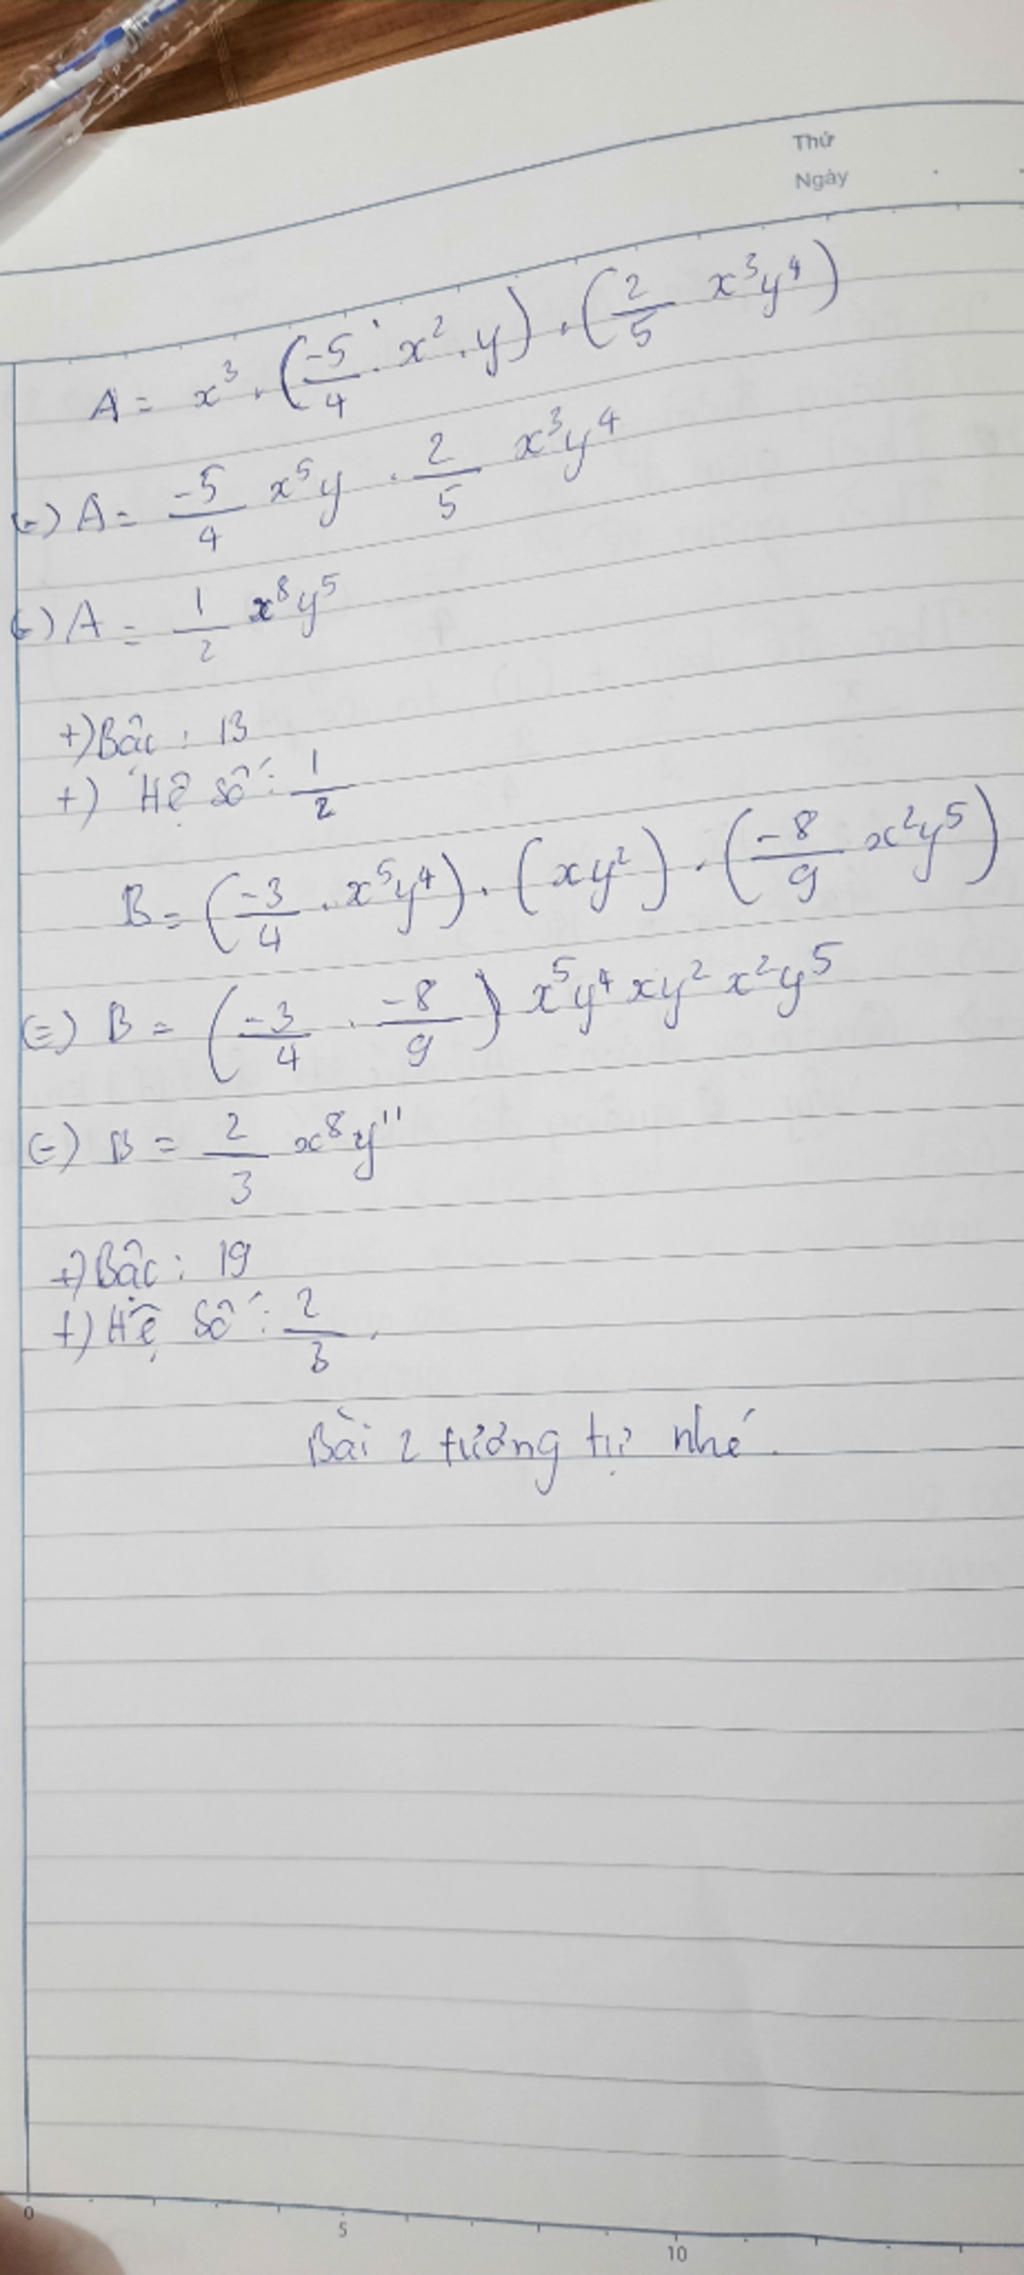 Thứ
Ngày
A = x³ . (-5/4 . x² . y) . (2/5 x³y⁴)
(=) A = -5/4 x⁵y . 2/5 x³y⁴
(=) A = 1/2 x⁸y⁵
+) Bậc : 13
+) Hệ số : 1/2
B = (-3/4 . x⁵y⁴) . (xy²) . (-8/9 x²y⁵)
(=) B = (-3/4 . -8/9) x⁵y⁴ xy² x²y⁵
(=) B = 2/3 x⁸y¹¹
+) Bậc : 19
+) Hệ số : 2/3 .
Bài 2 tương tự nhé .
0 5 10